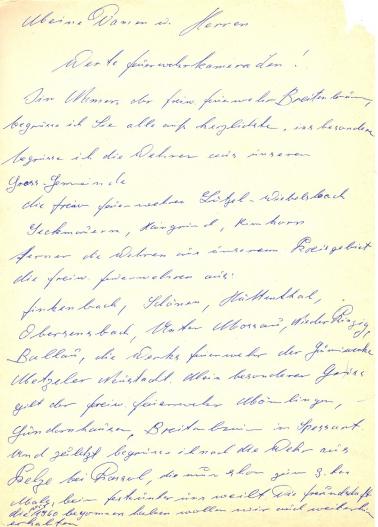 Meine Damen u. Herren
Werte Feuerwehrkameraden!
Im Namen der freiw Feuerwehr Breitenbrunn,
begrüsse ich Sie alle aufs herzlichste, ins besondere
begrüsse ich die Wehren aus unseren
Gross-Gemeinde
die freiw Feuerwehren Lützel-Wiebelsbach
Seckmauern, Haingrund, Rimhorn
Ferner die Wehren aus unserem Kreisgebiet
die freiw. Feuerwehren aus:
Finkenbach, Schönen, Hüttenthal,
Obersensbach, Unter Mossau, Nieder Kinzig,
Bullau, die Werks feuerwehr der Gummiwerke
Metzeler Neustadt. Mein besonderer Gruss
gilt der freiw Feuerwehr Mömlingen,
Gundernhausen, Breitenbrunn im Spessart
Und zuletzt begrüsse ich noch die Wehr aus
bei Kassel, die nun schon zum 3.
Male beim uns weilt Die Freundschaft
die 1960 begonnen haben wollen wir auch weiterhin
erhalten